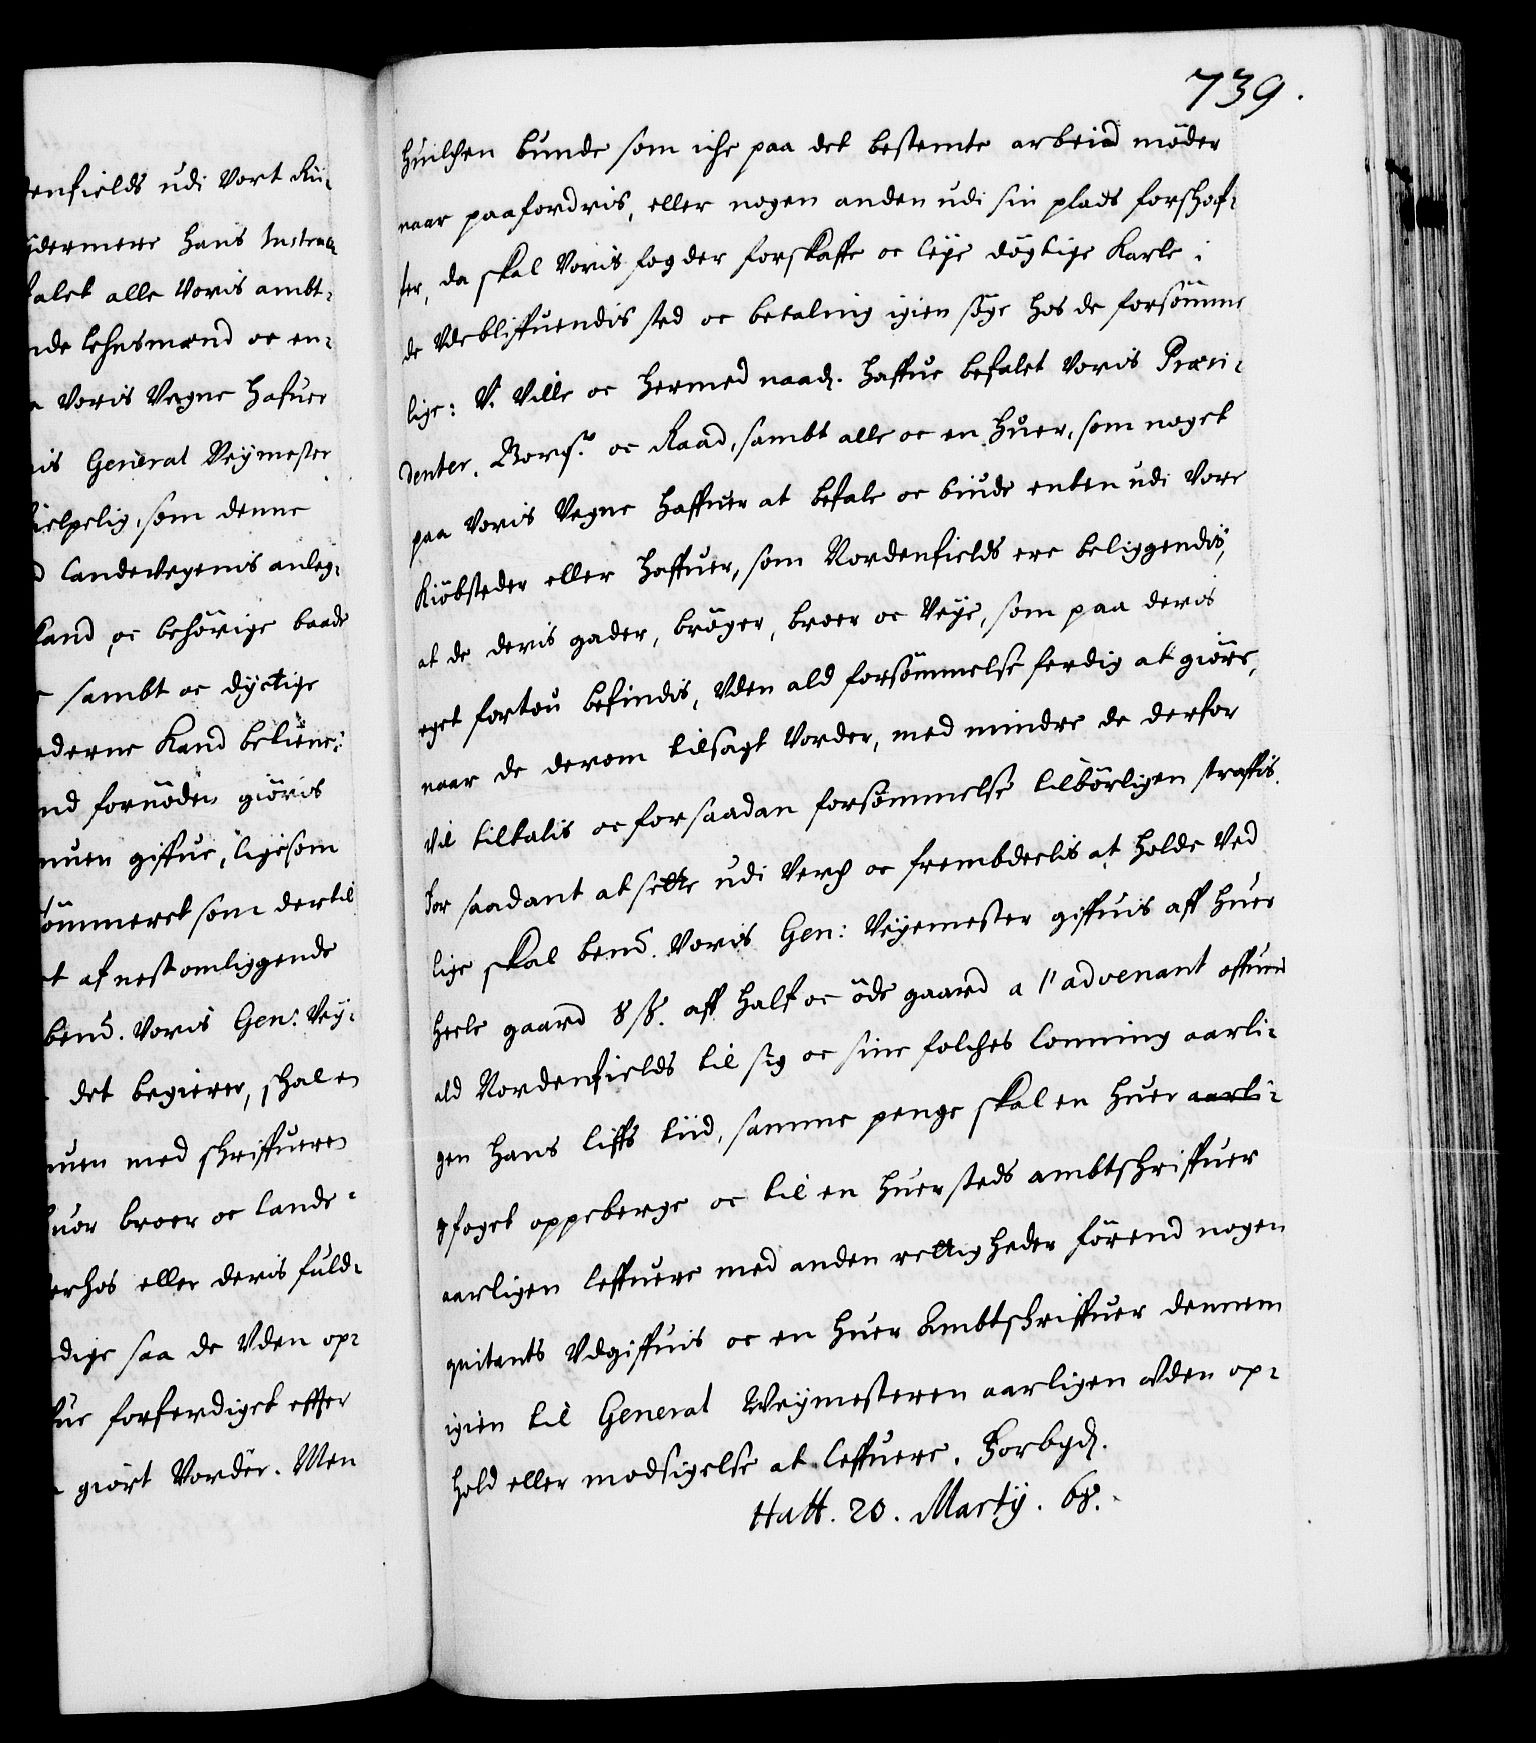 denfields udi Vort Rii-
ydermere hans Instruc-
falet alle Voris ambt-
nde lehnsmend oc en-
Voris Vegne hafuer
ris General Veymester
hielpelig, som denne
landevegenis anleg-
land, oc behörige baade
sambt oc dyctige
ederne Kand beliene:
nd fornöden giöris
muen giffue, ligesom
ömmeret som dertil
t af nest omliggende
bemt. Voris Gen: Vey-
det begierer, skal en
muen med skriffueren
huor broer oc lande-
erhos eller deris fuld-
dige saa de Vden op-
fue forferdiget effter
giört Vorder. Men
739.
huilchen bunde som iche paa det bestemte arbeid möder
naar paafordris, eller nogen anden udi sin plads forskaf-
fer, da skal Voris fogder forskaffe oc leye dögtige Karle i
de Vdebliffuendis sted oc betaling igien söge hos de forsömme
lige: Vi Ville oc hermed naad. haffue befalet Voris Præsi-
denter, Borg. oc Raad, sambt alle oc en huer, som noget
paa Voris Vegne haffuer at befale oc biude enten udi Vore
Kiöbsteder eller haffuer, som Nordenfields ere beliggendis,
at de deris gader, brögger, broer oc Veye, som paa deris
eget fortou befindis, Vden ald forsömmelse ferdig at giöre,
naar de derom tilsagt Vorder, med mindre de derfor
Vil tiltalis oc for saadan forsömmelse tilbörligen straffis.
For saadant at sette udi Verch oc frembdeelis at holde Ved
lige skal bemt. Voris Gen: Veyemester giffuis aff huer
heele gaard 8 s. aff half oc öde gaard a l'advenant offuer
ald Nordenfields til sig oc sine folches lonning aarli-
gen hans liffs tiid, samme penge skal en huer aarli-
g foget oppeberge oc til en huer steds ambtschriffuer
aarligen leffuere med anden rettigheder förend nogen
quitants Vdgiffuis oc en huer Ambtschriffuer dennem
igien til General Weymesteren aarligen vden op-
hold eller modsigelse at leffuere. Forbyd.
Haff. 20. Martij. 68.